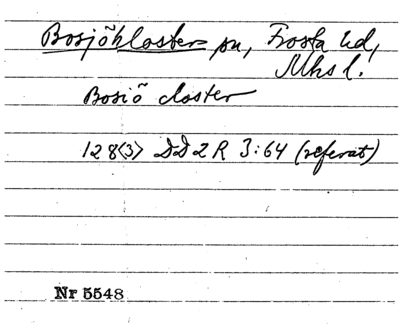 Bosjökloster sn, Frosta hd,
Mhs l.
Bosiö closter
128<3> DD 2 R 3:64 (referat)
Nr 5548